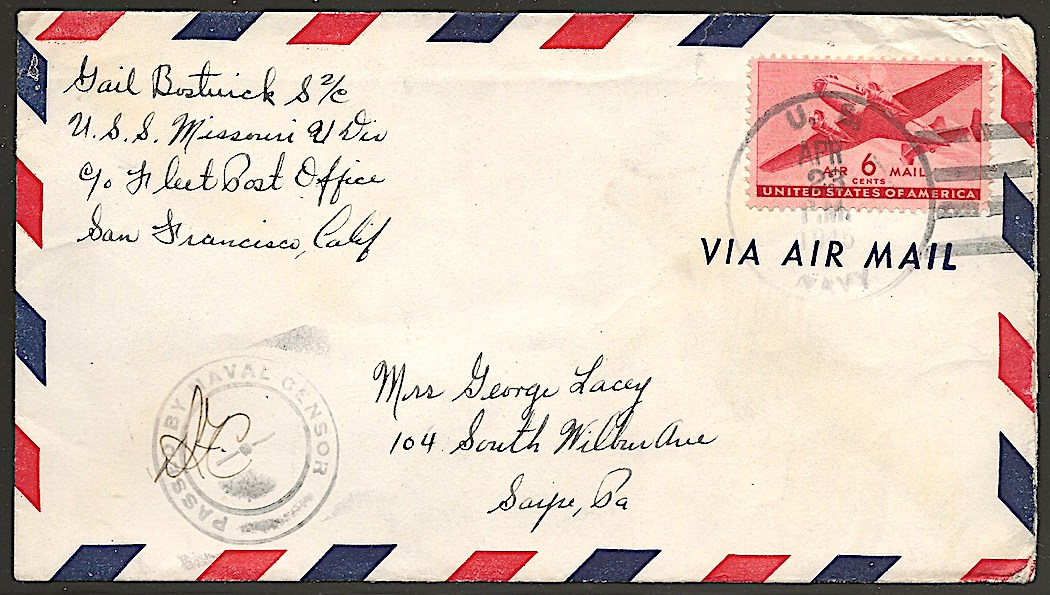 Gail Bostwick S 2/c
U.S.S. Missouri 4 Div
c/o Fleet Post Office
San Francisco, Calif
AIR 6 MAIL
CENTS
UNITED STATES OF AMERICA
U. S.
APR
23
P.M.
1945
NAVY
VIA AIR MAIL
PASSED BY NAVAL CENSOR
Mrs George Lacey
104 South Wilbur Ave
Sayre, Pa